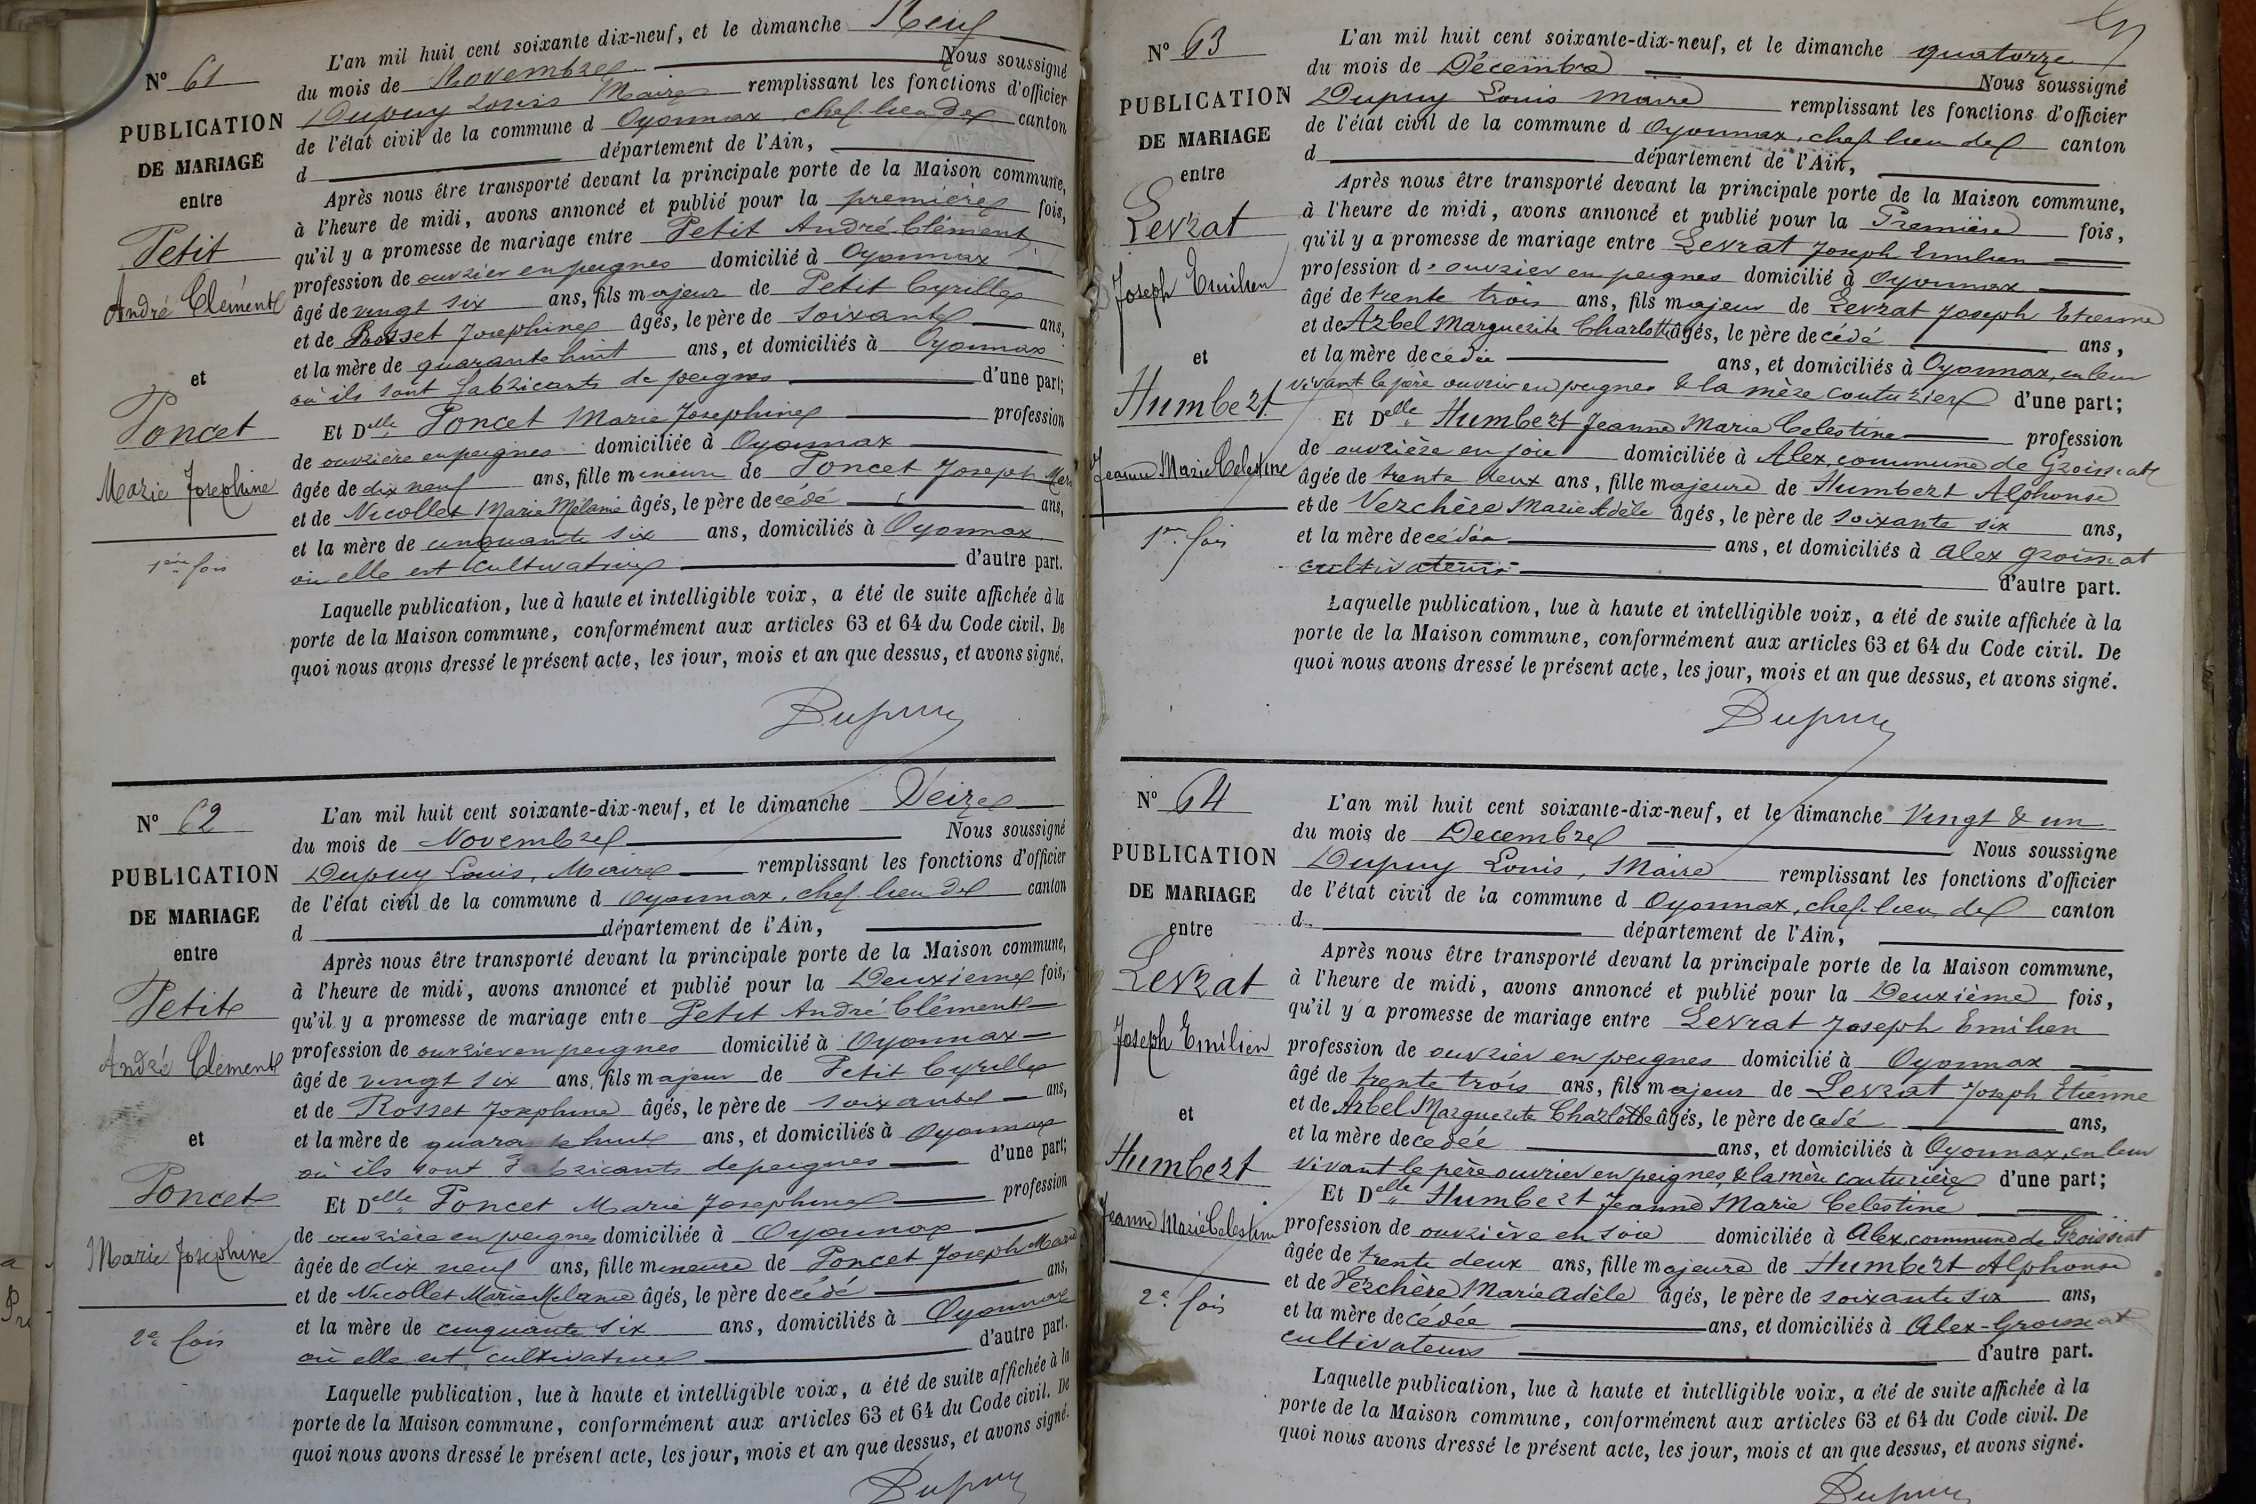 N° 61
PUBLICATION
DE MARIAGE
entre
Petit
André Clément
et
Poncet
Marie Josephine
1ère fois
L'an mil huit cent soixante dix-neuf, et le dimanche Neuf
du mois de Novembre Nous soussigné
Dupuy Louis Maire remplissant les fonctions d'officier
de l'état civil de la commune d Oyonnax, chef lieu de canton
d département de l'Ain,
Après nous être transporté devant la principale porte de la Maison commune,
à l'heure de midi, avons annoncé et publié pour la première fois,
qu'il y a promesse de mariage entre Petit André Clément
profession de ouvrier en peignes domicilié à Oyonnax
âgé de vingt six ans, fils majeur de Petit Cyrille
et de Rosset Josephine âgés, le père de soixante ans,
et la mère de quarante huit ans, et domiciliés à Oyonnax
où ils sont fabricants de peignes d'une part;
Et Delle Poncet Marie Josephine profession
de ouvrière en peignes domiciliée à Oyonnax
âgée de dix neuf ans, fille mineure de Poncet Joseph Marie
et de Nicollet Marie Mélanie âgés, le père decédé ans,
et la mère de cinquante six ans, domiciliés à Oyonnax
où elle est cultivatrice d'autre part.
Laquelle publication, lue à haute et intelligible voix, a été de suite affichée à la
porte de la Maison commune, conformément aux articles 63 et 64 du Code civil. De
quoi nous avons dressé le présent acte, les jour, mois et an que dessus, et avons signé.
Dupuy
N° 62
PUBLICATION
DE MARIAGE
entre
Petit
André Clément
et
Poncet
Marie Josephine
2e fois
L'an mil huit cent soixante-dix-neuf, et le dimanche Seize
du mois de Novembre Nous soussigné
Dupuy Louis, Maire remplissant les fonctions d'officier
de l'état civil de la commune d Oyonnax, chef lieu de canton
d département de l'Ain,
Après nous être transporté devant la principale porte de la Maison commune,
à l'heure de midi, avons annoncé et publié pour la Deuxième fois,
qu'il y a promesse de mariage entre Petit André Clément
profession de ouvrier en peignes domicilié à Oyonnax
âgé de vingt six ans, fils majeur de Petit Cyrille
et de Rosset Josephine âgés, le père de soixante ans,
et la mère de quarante huit ans, et domiciliés à Oyonnax
où ils sont Fabricants de peignes d'une part;
Et Delle Poncet Marie Josephine profession
de ouvrière en peignes domiciliée à Oyonnax
âgée de dix neuf ans, fille mineure de Poncet Joseph Marie
et de Nicollet Marie Melanie âgés, le père decédé ans,
et la mère de cinquante six ans, domiciliés à Oyonnax
où elle est cultivatrice d'autre part.
Laquelle publication, lue à haute et intelligible voix, a été de suite affichée à la
porte de la Maison commune, conformément aux articles 63 et 64 du Code civil. De
quoi nous avons dressé le présent acte, les jour, mois et an que dessus, et avons signé.
Dupuy
N° 63
PUBLICATION
DE MARIAGE
entre
Levrat
Joseph Emilien
et
Humbert
Jeanne Marie Celestine
1re fois
L'an mil huit cent soixante-dix-neuf, et le dimanche quatorze
du mois de Décembre Nous soussigné
Dupuy Louis Maire remplissant les fonctions d'officier
de l'état civil de la commune d Oyonnax, chef lieu de canton
d département de l'Ain,
Après nous être transporté devant la principale porte de la Maison commune,
à l'heure de midi, avons annoncé et publié pour la Première fois,
qu'il y a promesse de mariage entre Levrat Joseph Emilien
profession de ouvrier en peignes domicilié à Oyonnax
âgé de trente trois ans, fils majeur de Levrat Joseph Etienne
et de Arbel Marguerite Charlotte âgés, le père decédé ans,
et la mère decédée ans, et domiciliés à Oyonnax, en leur
vivant le père ouvrier en peignes & la mère couturière d'une part;
Et Delle Humbert Jeanne Marie Celestine profession
de ouvrière en soie domiciliée à Alex, commune de Groissiat
âgée de trente deux ans, fille majeure de Humbert Alphonse
et de Verchère Marie Adèle âgés, le père de soixante six ans,
et la mère decédée ans, et domiciliés à Alex Groissiat
cultivateurs d'autre part.
Laquelle publication, lue à haute et intelligible voix, a été de suite affichée à la
porte de la Maison commune, conformément aux articles 63 et 64 du Code civil. De
quoi nous avons dressé le présent acte, les jour, mois et an que dessus, et avons signé.
Dupuy
N° 64
PUBLICATION
DE MARIAGE
entre
Levrat
Joseph Emilien
et
Humbert
Jeanne Marie Celestine
2e fois
L'an mil huit cent soixante-dix-neuf, et le dimanche Vingt & un
du mois de Decembre Nous soussigné
Dupuy Louis, Maire remplissant les fonctions d'officier
de l'état civil de la commune d Oyonnax, chef lieu de canton
d département de l'Ain,
Après nous être transporté devant la principale porte de la Maison commune,
à l'heure de midi, avons annoncé et publié pour la Deuxième fois,
qu'il y a promesse de mariage entre Levrat Joseph Emilien
profession de ouvrier en peignes domicilié à Oyonnax
âgé de trente trois ans, fils majeur de Levrat Joseph Etienne
et de Arbel Marguerite Charlotte âgés, le père decedé ans,
et la mère decedée ans, et domiciliés à Oyonnax, en leur
vivant le père ouvrier en peignes, & la mère couturière d'une part;
Et Delle Humbert Jeanne Marie Celestine
profession de ouvrière en soie domiciliée à Alex, commune de Groissiat
âgée de trente deux ans, fille majeure de Humbert Alphonse
et de Verchère Marie Adèle âgés, le père de soixante six ans,
et la mère decédée ans, et domiciliés à Alex-Groissiat
cultivateurs d'autre part.
Laquelle publication, lue à haute et intelligible voix, a été de suite affichée à la
porte de la Maison commune, conformément aux articles 63 et 64 du Code civil. De
quoi nous avons dressé le présent acte, les jour, mois et an que dessus, et avons signé.
Dupuy